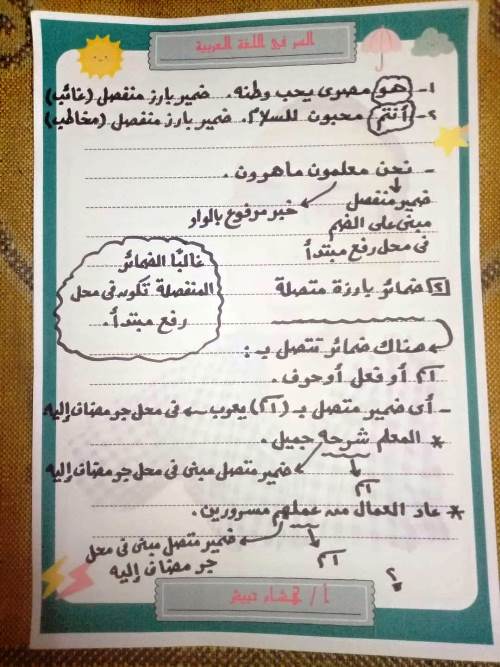 السر في اللغة العربية
١- هو مصرى يحب وطنه. ضمير بارز منفصل (غائب)
٢- أنتم محبون للسلام. ضمير بارز منفصل (مخاطب)
- نحن معلمون ماهرون.
ضمير منفصل
مبنى على الضم
فى محل رفع مبتدأ
خبر مرفوع بالواو
غالبًا الضمائر
المنفصلة تكون فى محل
رفع مبتدأ.
٢ ضمائر بارزة متصلة
هناك ضمائر تتصل بـ :
اسم أو فعل أو حرف.
- أى ضمير متصل بـ (اسم) يعرب فى محل جر مضاف إليه
* المعلم شرحه جميل.
ضمير متصل مبنى فى محل جر مضاف إليه
اسم
* عاد العمال من عملهم مسرورين.
ضمير متصل مبنى فى محل
جر مضاف إليه
اسم
٢
أ /